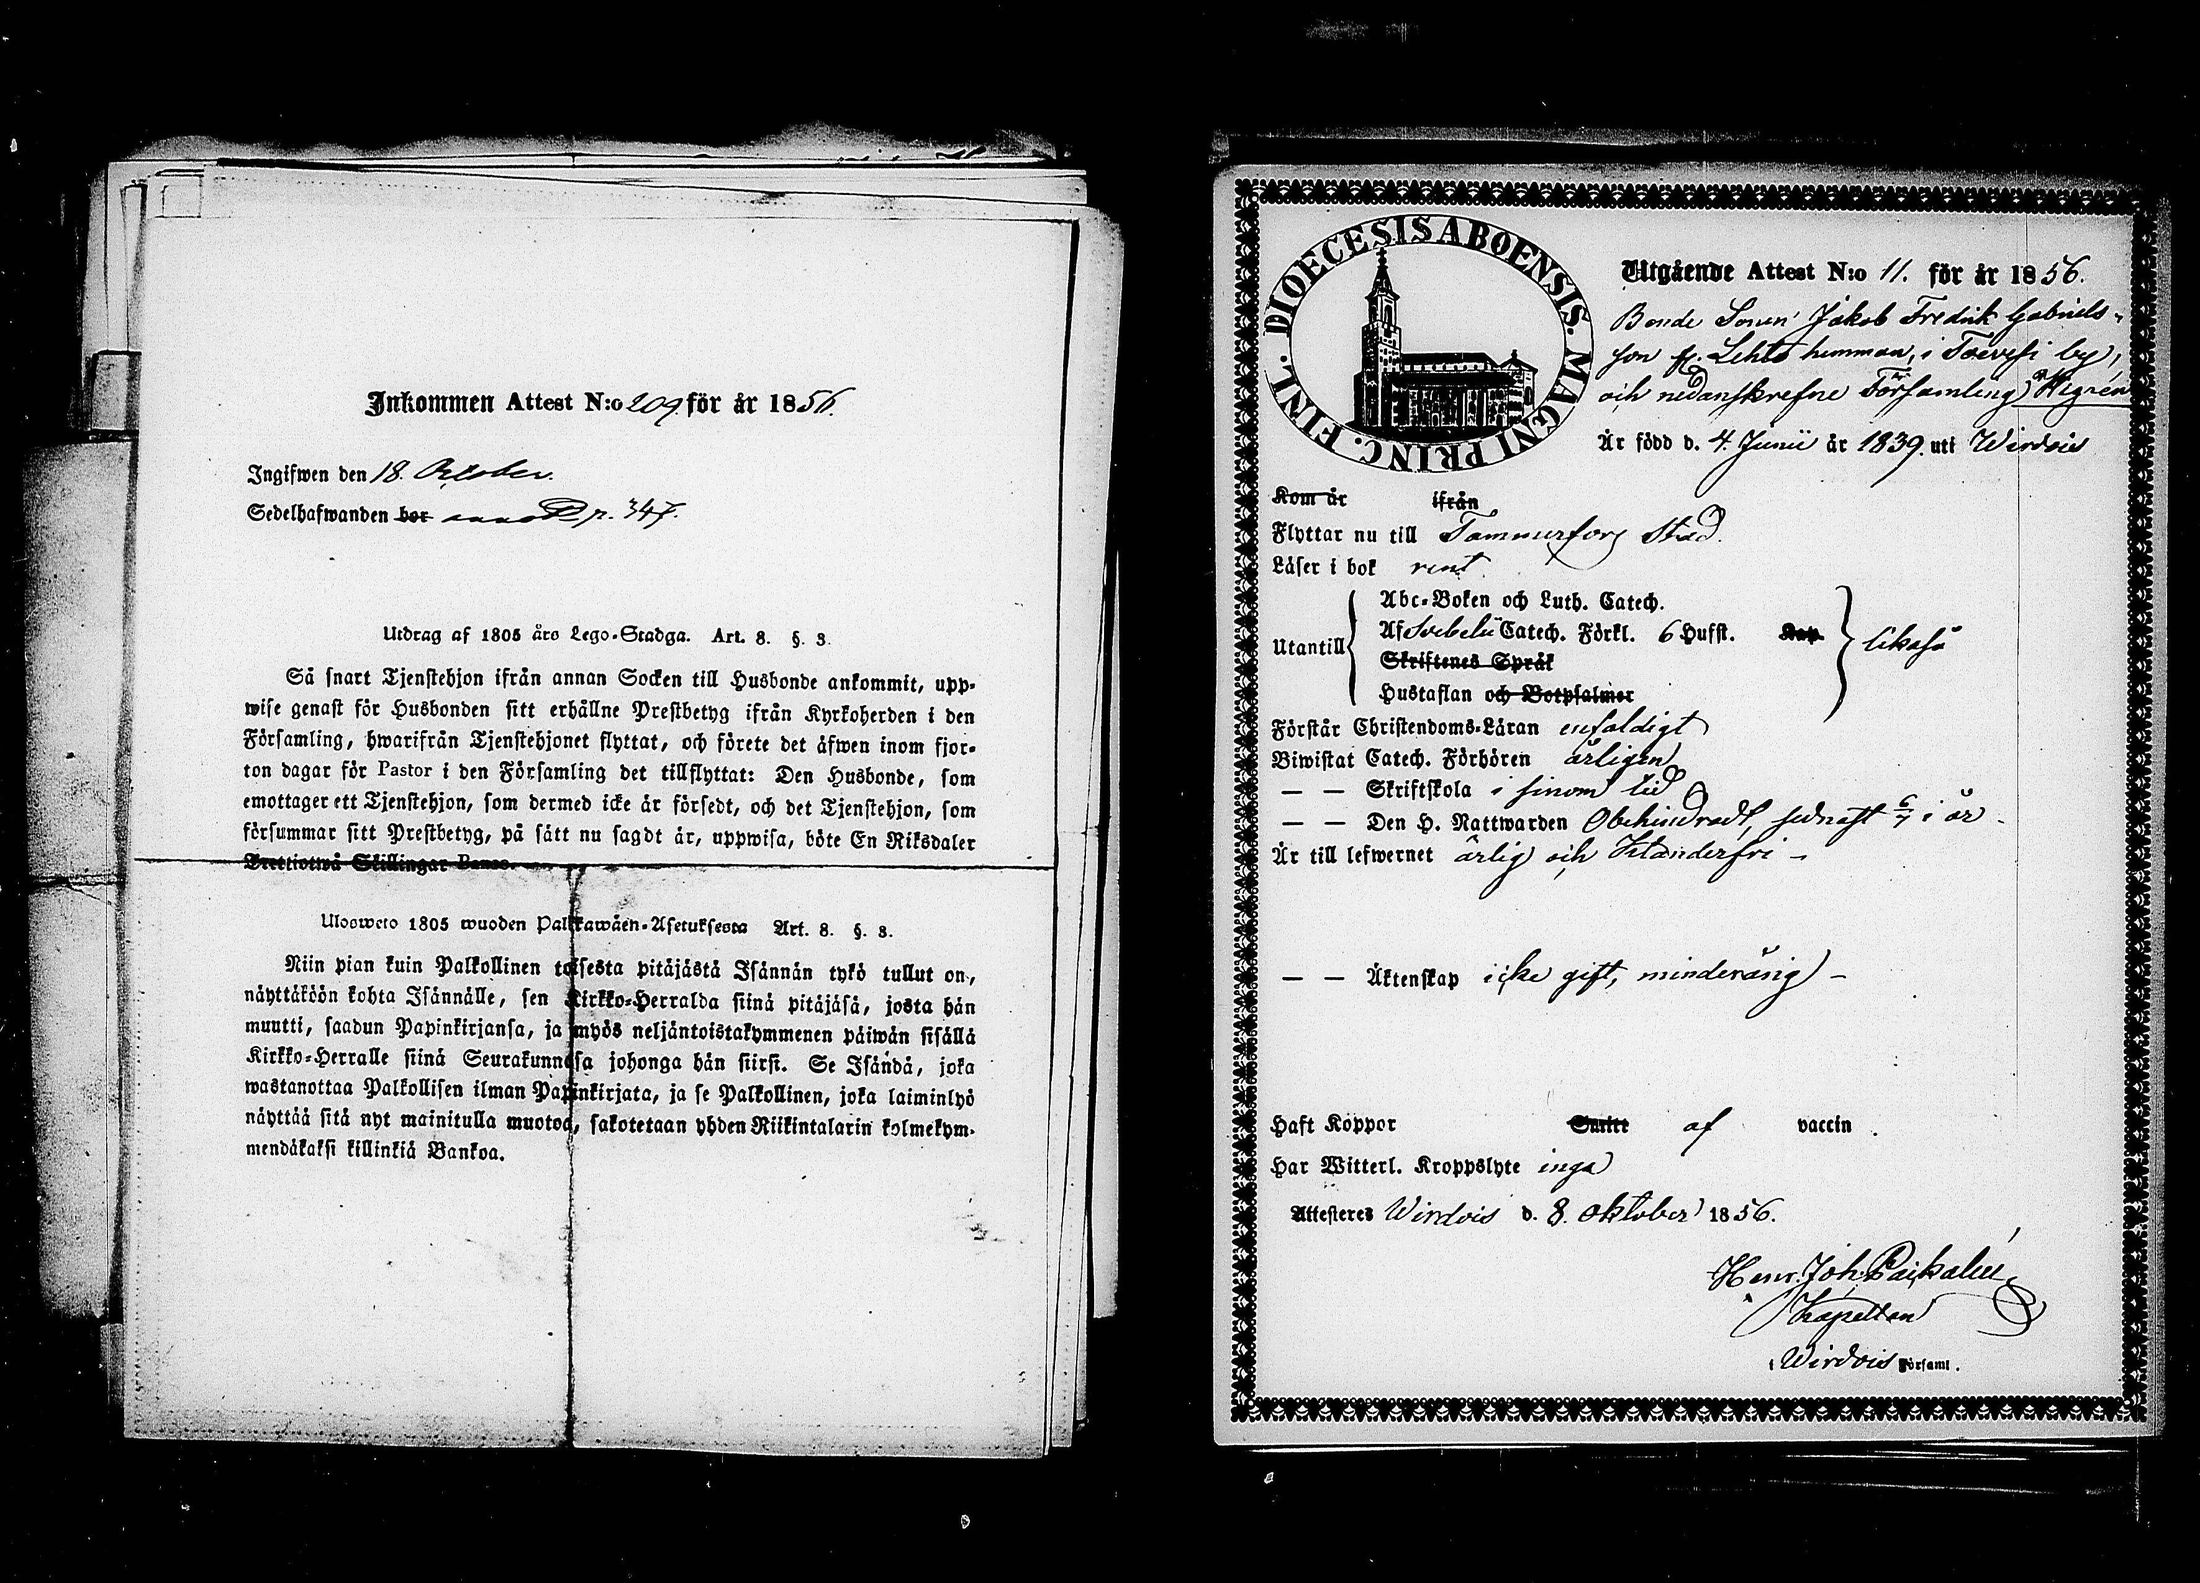 Inkommen Attest N:o 209 för år 1856.
Ingifwen den 18. October.
Sedelhafwanden bor p. 347.
Utdrag af 1805 års Lego-Stadga. Art. 8. §. 3.
Så snart Tjenstehjon ifrån annan Socken till Husbonde ankommit, upp-
wise genast för Husbonden sitt erhållne Prestbetyg ifrån Kyrkoherden i den
Församling, hwarifrån Tjenstehjonet flyttat, och förete det äfwen inom fjor-
ton dagar för Pastor i den Församling det tillflyttat: Den Husbonde, som
emottager ett Tjenstehjon, som dermed icke är försedt, och det Tjenstehjon, som
försummar sitt Prestbetyg, på sätt nu sagdt är, uppwisa, böte En Riksdaler
Trettiotwå Skillingar Banco.
Ulosweto 1805 wuoden Palkkawäen-Asetuksesta Art. 8. §. 3.
Niin pian kuin Palkollinen toisesta pitäjästä Isännän tykö tullut on,
näyttäköön kohta Isännälle, sen Kirkko-Herralda siinä pitäjäsä, josta hän
muutti, saadun Papinkirjansa, ja myös neljäntoistakymmenen päiwän sisällä
Kirkko-Herralle siinä Seurakunnasa johonga hän siirsi. Se Isändä, joka
wastanottaa Palkollisen ilman Papinkirjata, ja se Palkollinen, joka laiminlyö
näyttää sitä nyt mainitulla muotoa, sakotetaan yhden Riikintalarin kolmekym-
mendäkaksi killinkiä Bankoa.
DIOECESIS ABOENSIS. MAGNI PRINC. FINL.
Utgående Attest N:o 11. för år 1856.
Bonde Sonen Jakob Fredrik Gabriels-
son fr. Lehto hemman, i Toevesi by,
och nedanskrefne Församling, Hegrén
Är född d. 4. Junii år 1839. uti Wirdois
Kom år ifrån
Flyttar nu till Tammerfors Stad.
Läser i bok rent
Abc-Boken och Luth. Catech.
Utantill Af Svebelii Catech. Förkl. 6 Hufst. Kap. likaså
Skriftenes Språk
Hustaflan och Botpsalmer
Förstår Christendoms-Läran enfaldigt
Biwistat Catech. Förhören årligen
— — Skriftskola i sinom tid
— — Den H. Nattwarden Obehindradt, sednast 6/7 i år -
Är till lefwernet ärlig och klanderfri -
— — Äktenskap icke gift, minderårig -
Haft Koppor Smitt af vaccin.
Har Witterl. Kroppslyte inga
Attesteres Wirdois d. 8. Oktober 1856.
Henr. Joh.
Kapellan
i Wirdois Församl.